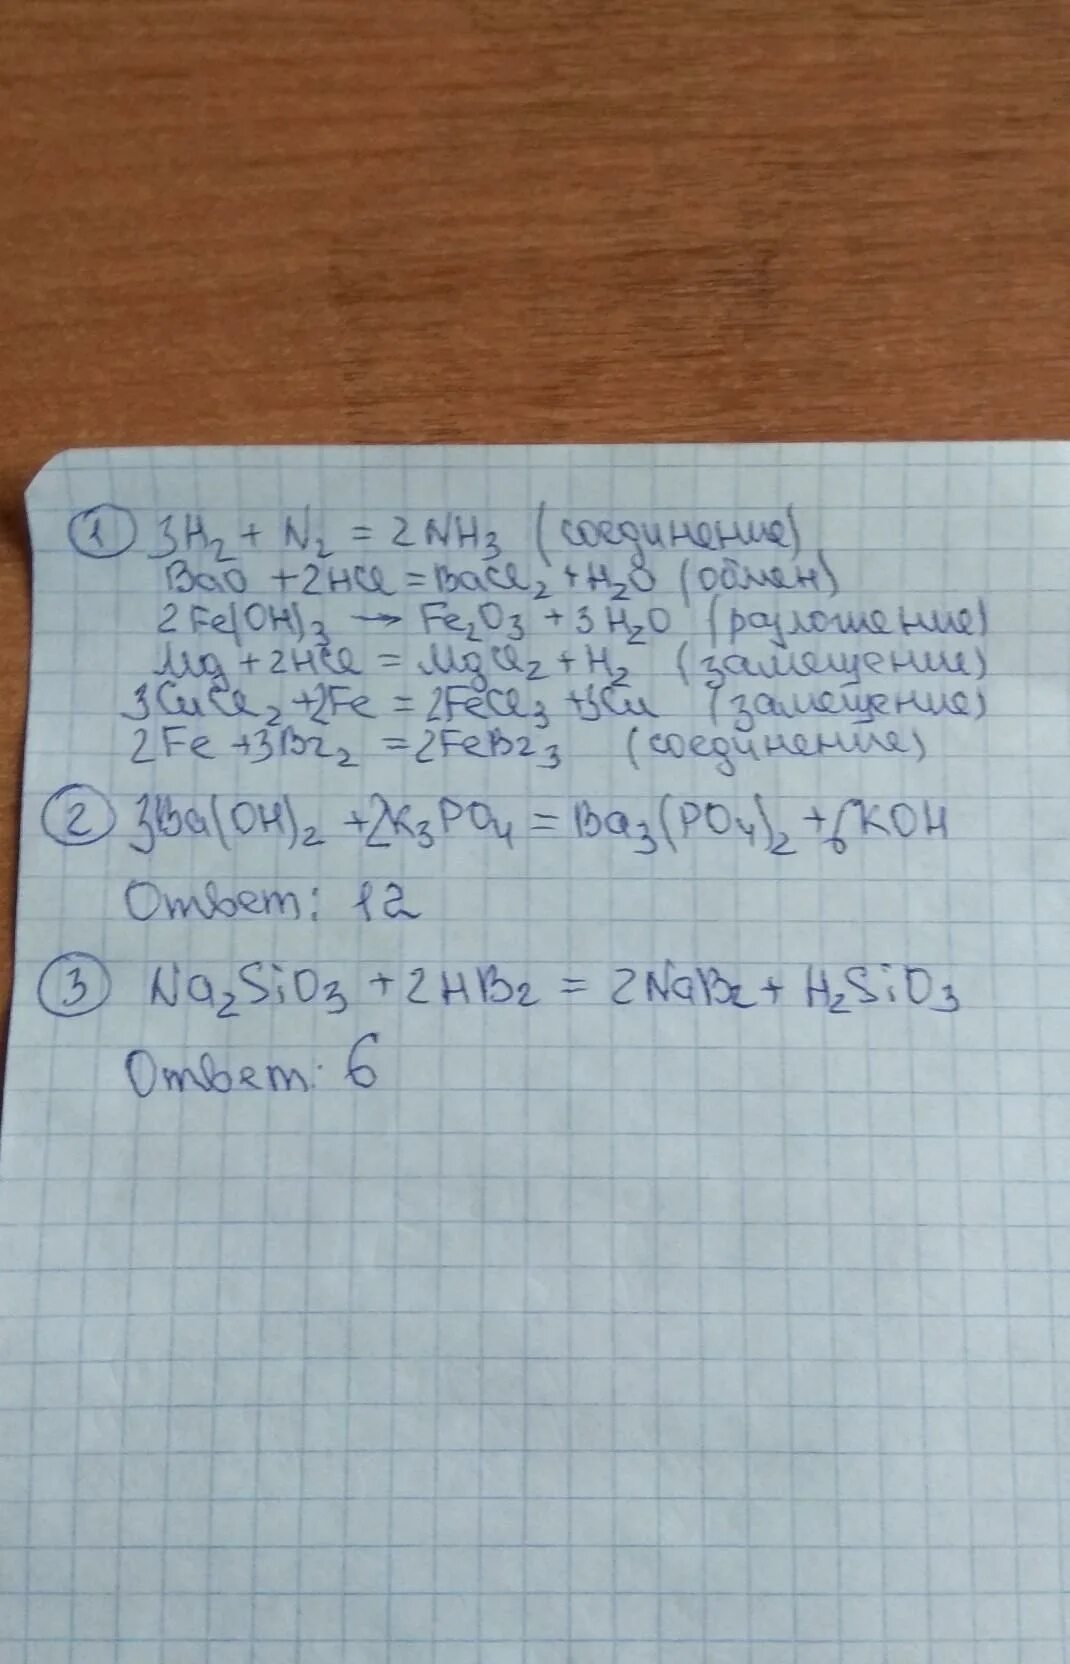 1 3H₂ + N₂ = 2NH₃ (соединение)
BaO + 2HCl = BaCl₂ + H₂O (обмен)
2Fe(OH)₃ → Fe₂O₃ + 3H₂O (разложение)
Mg + 2HCl = MgCl₂ + H₂ (замещение)
3CuCl₂ + 2Fe = 2FeCl₃ + 3Cu (замещение)
2Fe + 3Br₂ = 2FeBr₃ (соединение)
2 3Ba(OH)₂ + 2K₃PO₄ = Ba₃(PO₄)₂ + 6KOH
Ответ: 12
3 Na₂SiO₃ + 2HBr = 2NaBr + H₂SiO₃
Ответ: 6